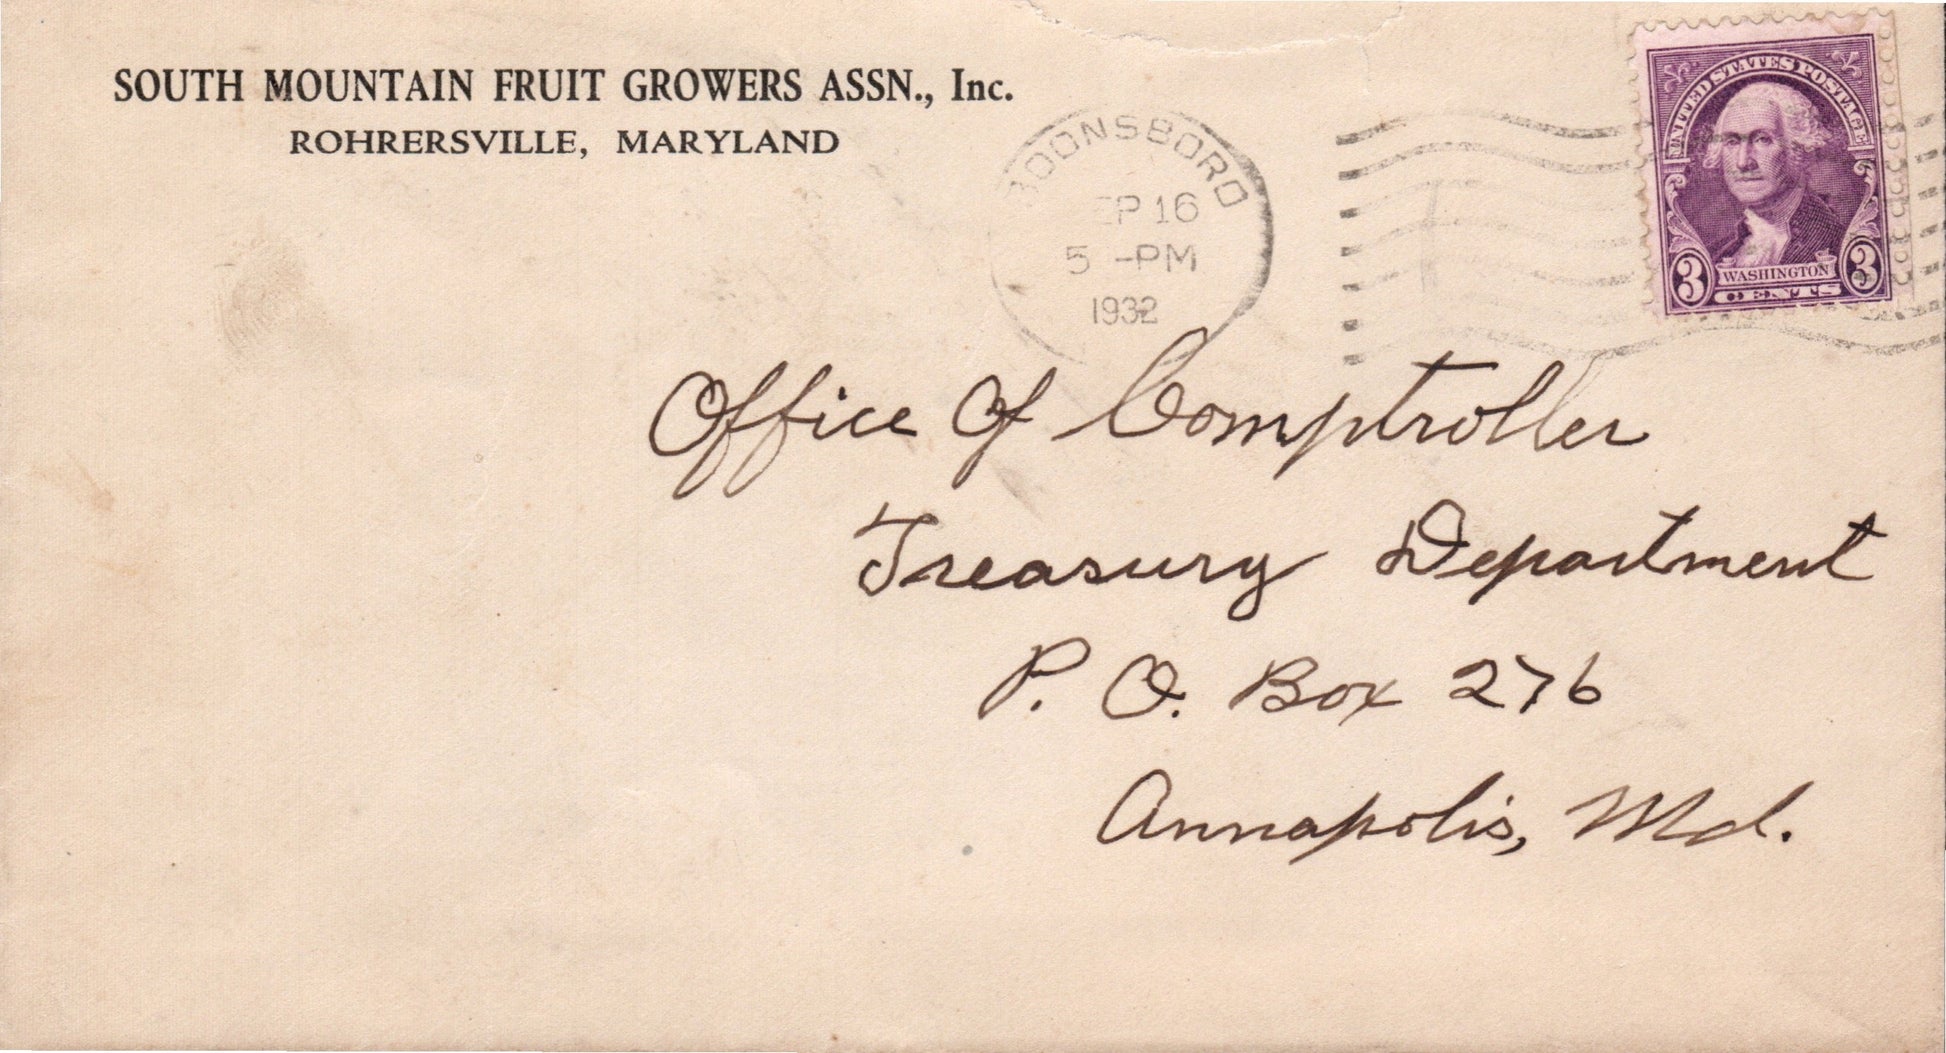 SOUTH MOUNTAIN FRUIT GROWERS ASSN., Inc.
ROHRERSVILLE, MARYLAND
BOONSBORO
SEP 16
5 -PM
1932
UNITED STATES POSTAGE
3 WASHINGTON 3
CENTS
Office Of Comptroller
Treasury Department
P. O. Box 276
Annapolis, Md.